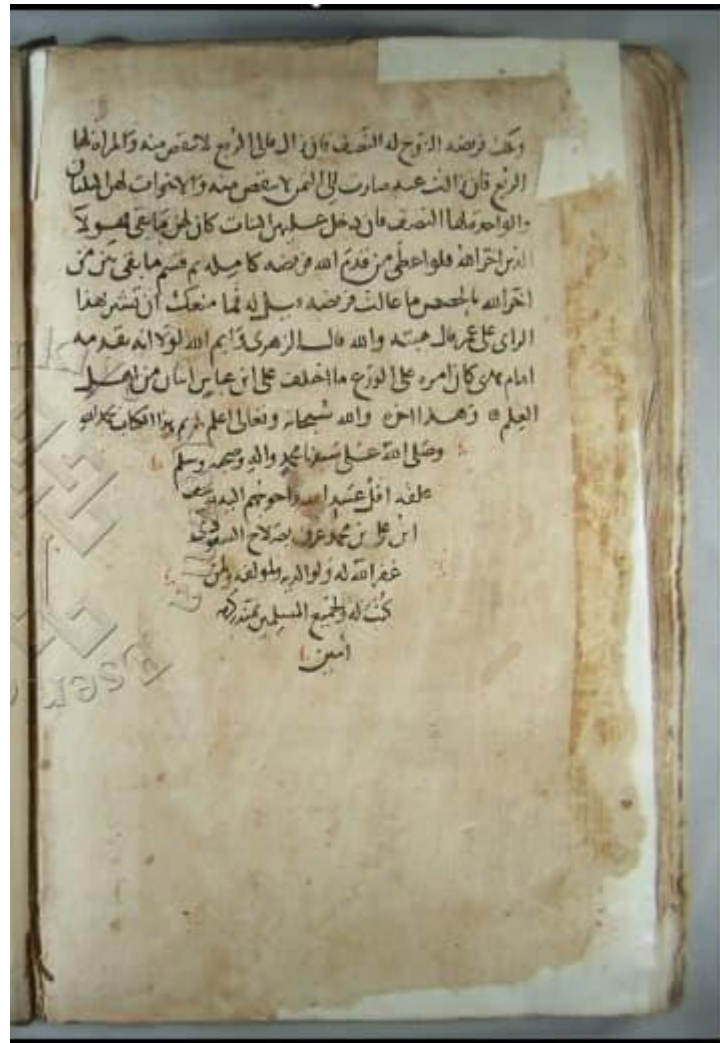 وتلك فريضه الزوج له النصف فان زال فالى الربع لا ينقص منه والمراة لها
الربع فان زالت عنه صارت الى الثمن لا ينقص منه والاخوات لهن الثلثان
والواحدة لها النصف فان دخل عليهن البنات كان لهن ما بقى فهولا
الذين اخر الله فلو اعطى من قدم الله فريضه كامله ثم قسم ما بقى بين من
اخر الله بالحصص ما عالت فريضه قيل له فما منعك ان تشير بهذا
الراى على عمر قال هبته والله قال الزهرى وايم الله لولا انه تقدمه
امام هدى كان امره على الورع ما اختلف على ابن عباس اثنان من اهل
العلم وهذا اخره والله سبحانه وتعالى اعلم تم هذا الكتاب بحمد الله
وصلى الله على سيدنا محمد واله وصحبه وسلم
علقه اقل عبيد الله واحوجهم اليه
ابن على بن محمد عرف بصلاح
غفر الله له ولوالديه ولمولفه ولمن
كتب له ولجميع المسلمين بمنه وكرمه
امين